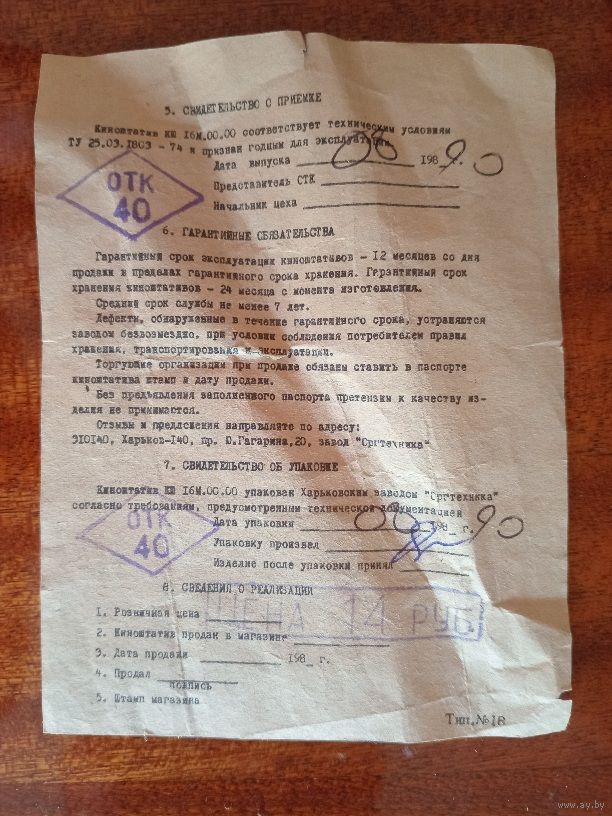 5. СВИДЕТЕЛЬСТВО О ПРИЕМКЕ
Киноштатив КШ I6М.00.00 соответствует техническим условиям
ТУ 25.03.I803 - 74 и признан годным для эксплуатации.
Дата выпуска 08 198 90
Представитель СТК
Начальник цеха
ОТК
40
6. ГАРАНТИЙНЫЕ ОБЯЗАТЕЛЬСТВА
Гарантийный срок эксплуатации киноштативов - I2 месяцев со дня
продажи в пределах гарантийного срока хранения. Гарантийный срок
хранения киноштативов - 24 месяца с момента изготовления.
Средний срок службы не менее 7 лет.
Дефекты, обнаруженные в течение гарантийного срока, устраняются
заводом безвозмездно, при условии соблюдения потребителем правил
хранения, транспортирования и эксплуатации.
Торгующие организации при продаже обязаны ставить в паспорте
киноштатива штамп и дату продажи.
Без предъявления заполненного паспорта претензии к качеству из-
делия не принимаются.
Отзывы и предложения направляйте по адресу:
3I0I40, Харьков-I40, пр. Ю.Гагарина,20, завод "Оргтехника"
7. СВИДЕТЕЛЬСТВО ОБ УПАКОВКЕ
Киноштатив КШ I6М.00.00 упакован Харьковским заводом "Оргтехника"
согласно требованиям, предусмотренным технической документацией
Дата упаковки 08 198_ г. 90
Упаковку произвел
Изделие после упаковки принял
ОТК
40
8. СВЕДЕНИЯ О РЕАЛИЗАЦИИ
ЦЕНА 14 РУБ.
1. Розничная цена
2. Киноштатив продан в магазине
3. Дата продажи 198_ г.
4. Продал
подпись
5. Штамп магазина
Тип.№18
www.ay.by